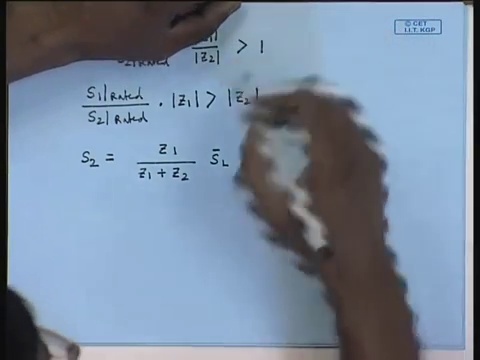 © CET
I.I.T. KGP
|Z₂| > 1
S₁|Rated / S₂|Rated · |Z₁| > |Z₂|
S₂ = Z₁ / (Z₁ + Z₂) S̄L